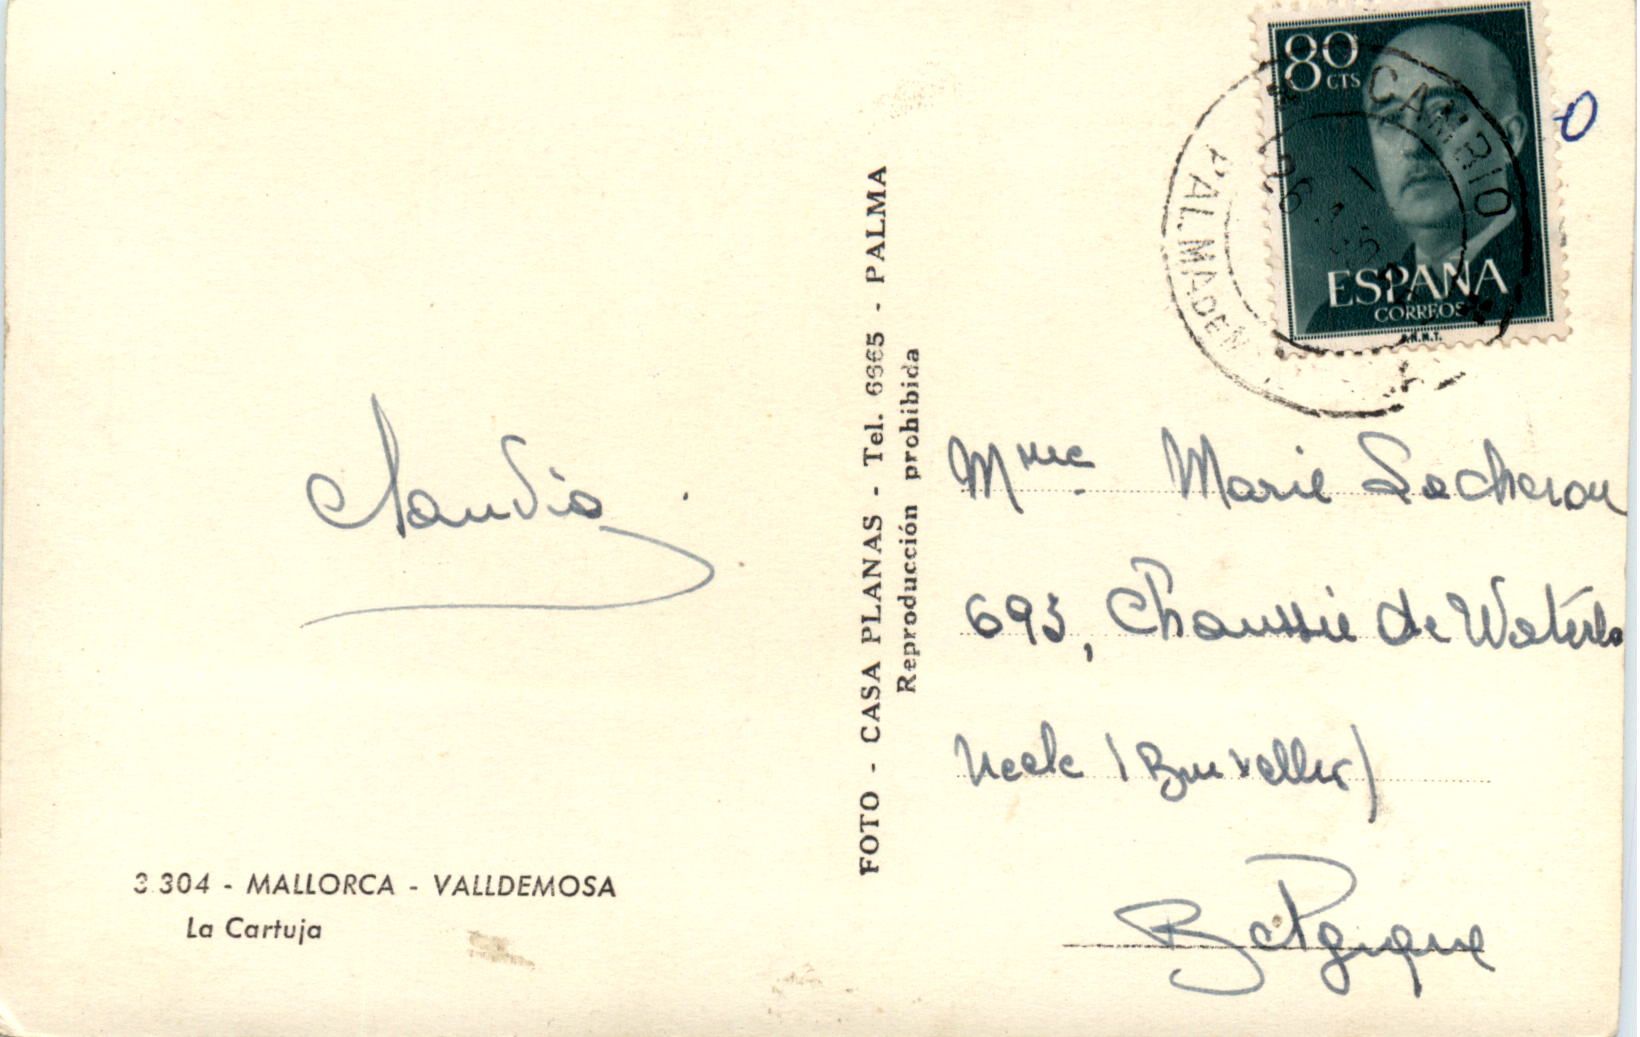 80
CTS
ESPAÑA
CORREOS
F.N.M.T.
CAMBIO
PALMA DE M
FOTO - CASA PLANAS - Tel. 6665 - PALMA
Reproducción prohibida
Claudia
Mme Marie Lacheron
693, Chaussée de Waterlo
Uccle (Bruxelles)
Belgique
3.304 - MALLORCA - VALLDEMOSA
La Cartuja